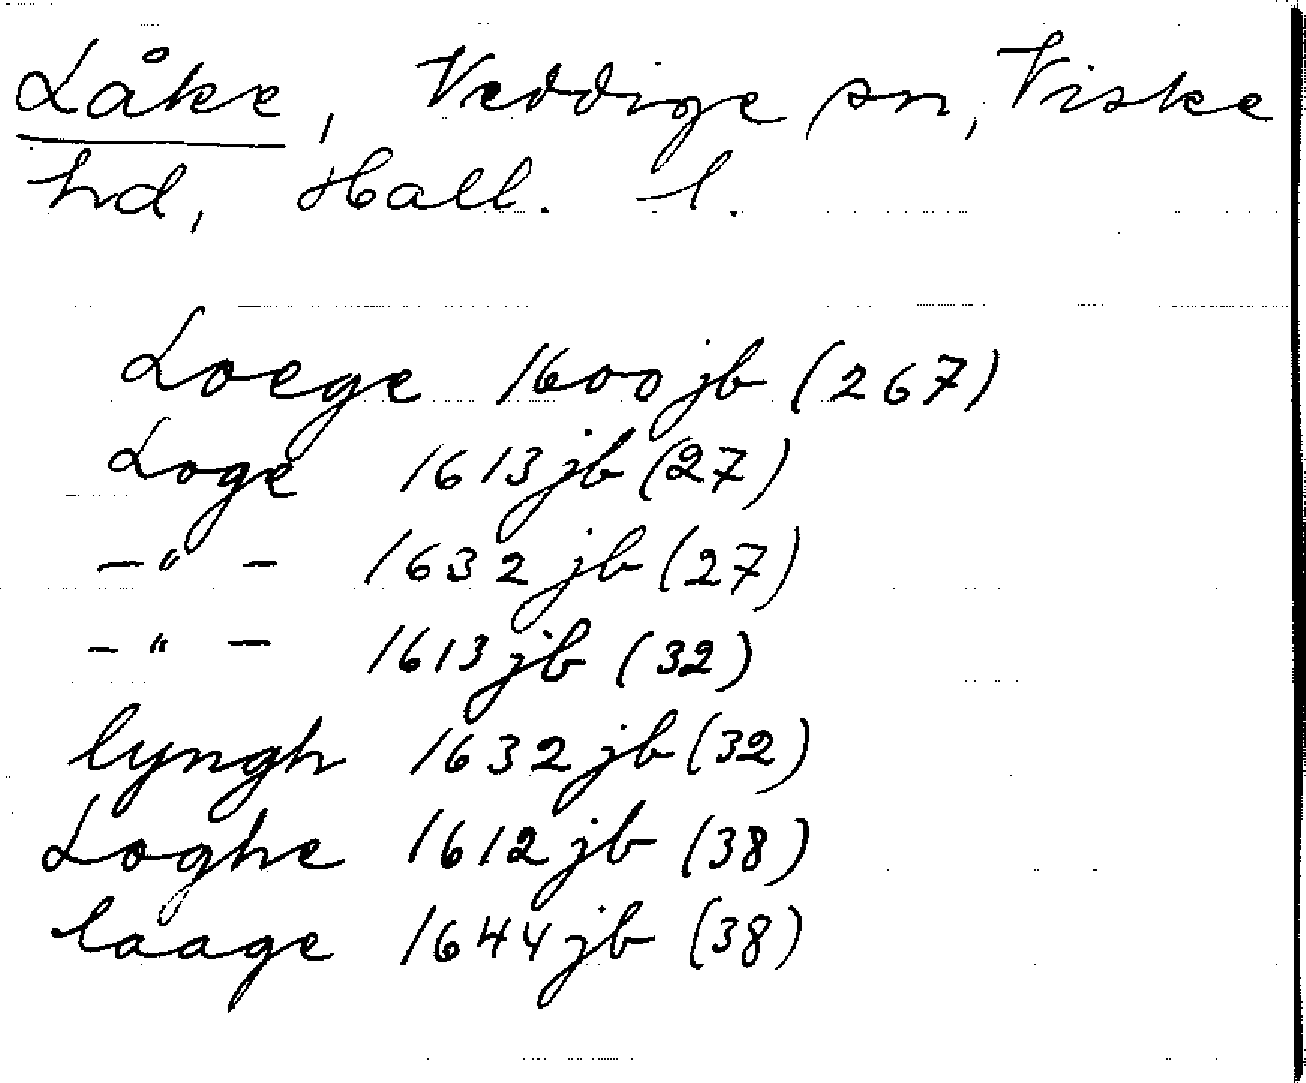 Låke, Veddige sn, Viske
hd, Hall. l.
Loege 1600 jb (267)
Loge 1613 jb (27)
-"- 1632 jb (27)
-"- 1613 jb (32)
lyngh 1632 jb (32)
Loghe 1612 jb (38)
laage 1644 jb (38)